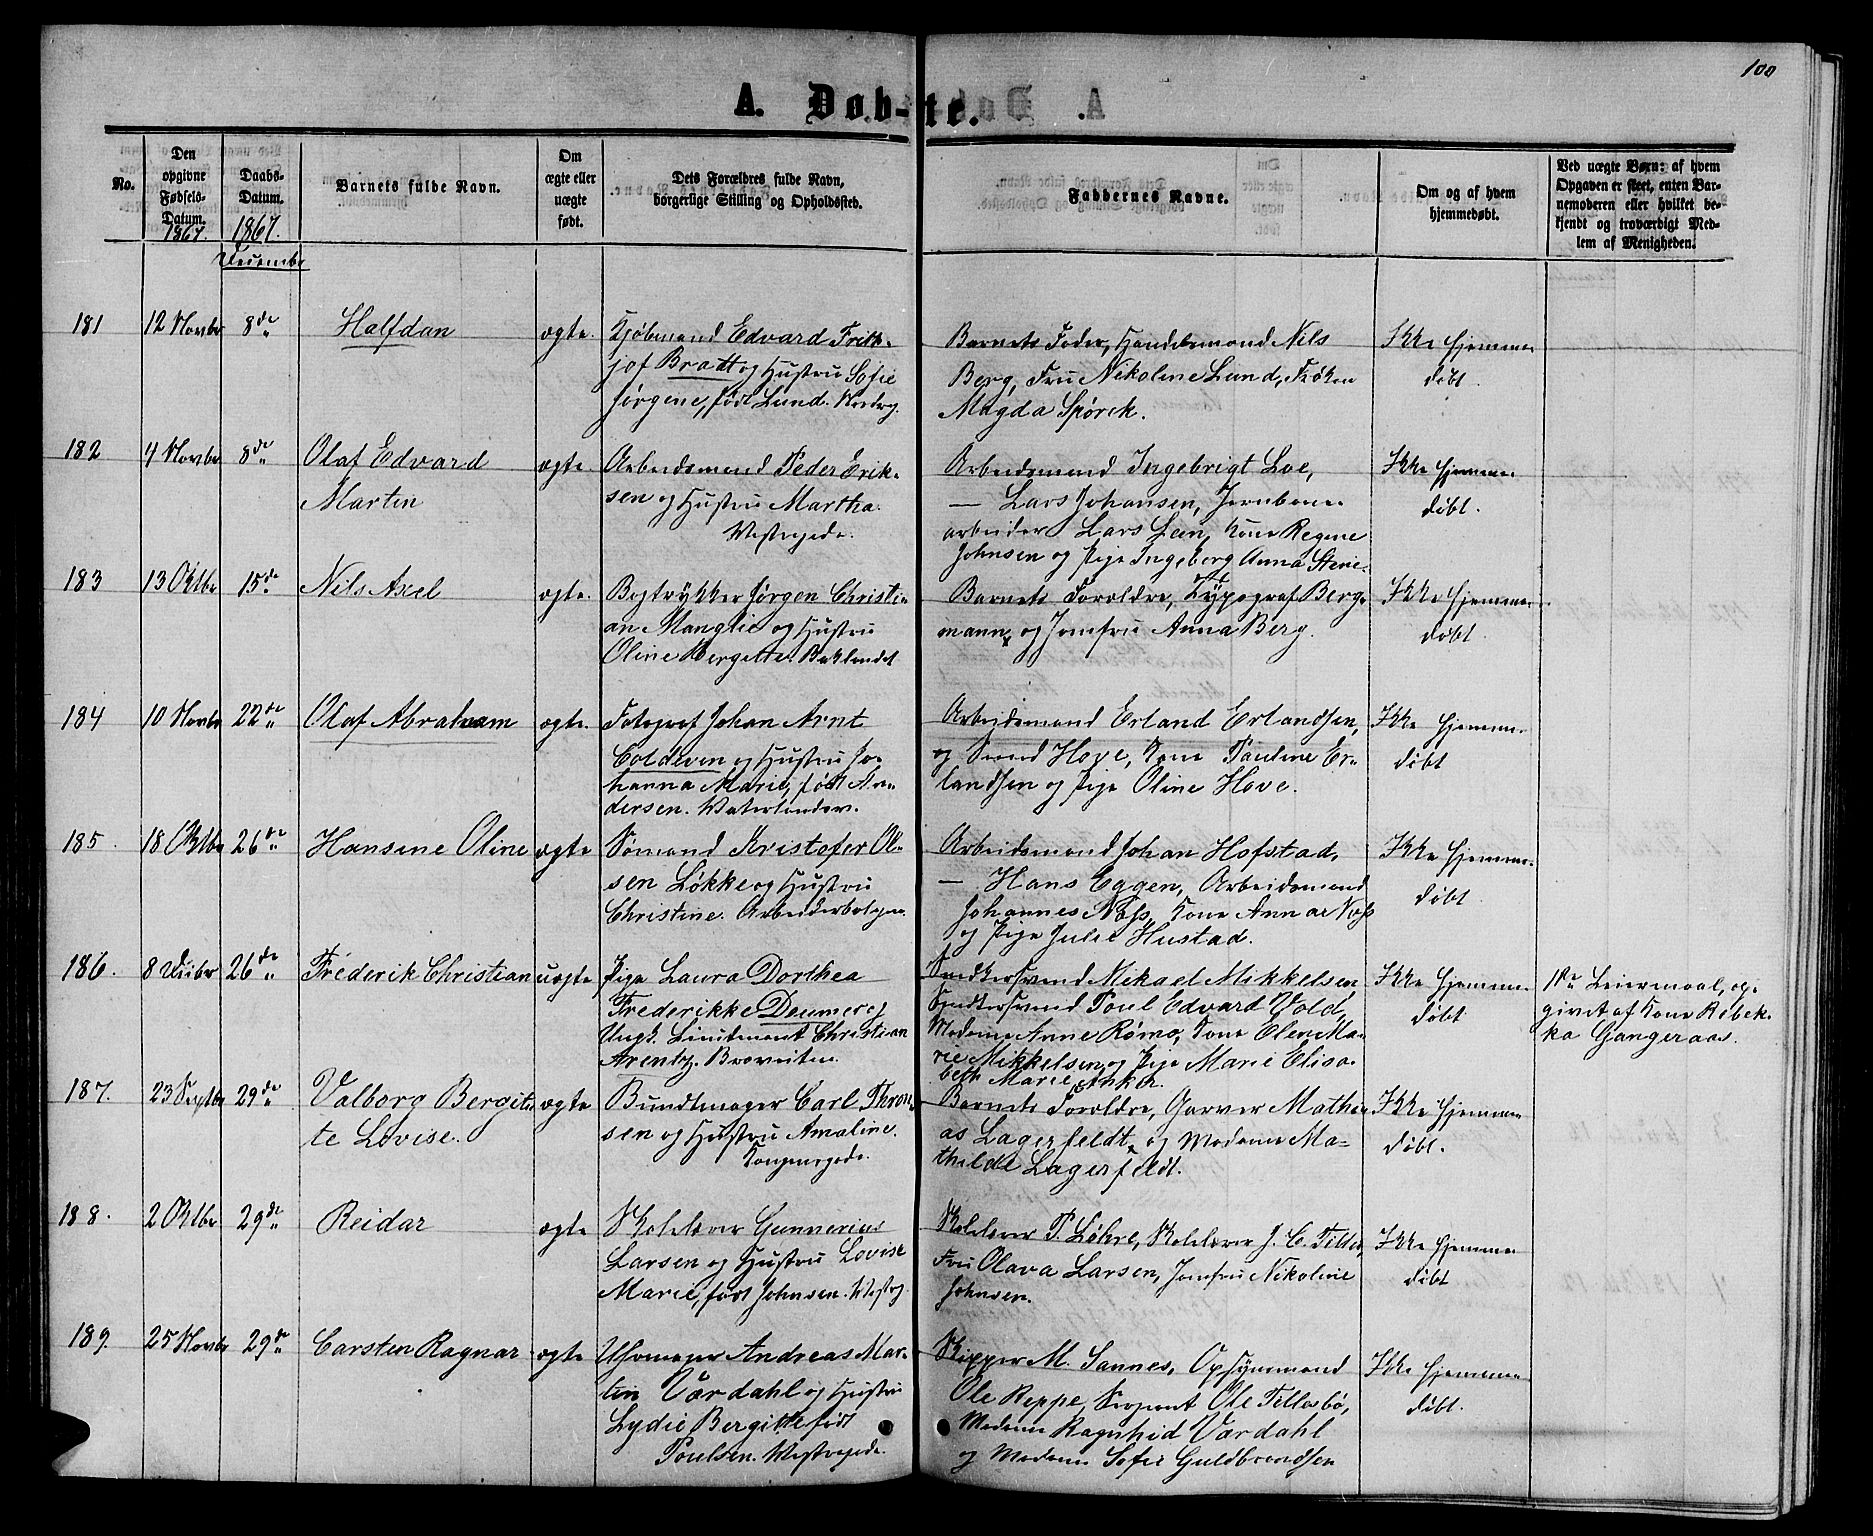 100
A. Døb-te.
No.
Den opgivne Fødsels-Datum. 1867.
Daabs-Datum. 1867.
Barnets fulde Navn.
Om ægte eller uægte født.
Dets Forældres fulde Navn, borgerlige Stilling og Opholdssted.
Faddernes Navne.
Om og af hvem hjemmedøbt.
Ved uægte Børn: af hvem Opgaven er skeet, enten Barnemoderen eller hvilket bekjendt og troværdigt Medlem af Menigheden.
December
181 12 Novbr 8de Halfdan ægte.
Kjøbmand Edvard Frith-
jof Bratt og Hustru Sofie
Jørgene, født Lund.
Barnets Fader, Handelsmand Nils
Berg, Fru Nikoline Lund, Frøken
Magda Spörck.
Ikke hjemme-
døbt.
182 4 Novbr 8de Olaf Edvard
Martin
ægte.
Arbeidsmand Peder Erik-
sen og Hustru Martha.
Vestregade.
Arbeidsmand Ingebrigt Loe,
— Lars Johansen, Jernbane-
arbeider Lars Leen, Kone Regine
Johnsen og Pige Ingeberg Anna Stene.
Ikke hjemme-
døbt.
183 13 Oktbr 15de Nils Axel ægte.
Bogtrykker Jørgen Christi-
an Manglie og Hustru
Oline Bergette. Baklandet
Barnets Forældre, Typograf Berg-
mann, og Jomfru Anna Berg.
Ikke hjemme-
døbt.
184 10 Novbr 22de Olaf Abraham ægte.
Fotograf Johan Arnt
Coldeven og Hustru Jo-
hanna Marie, født An-
dersen.
Arbeidsmand Erland Erlandsen,
og Svend Hove, Kone Pauline Er-
landsen og Pige Oline Hove.
Ikke hjemme-
døbt
185. 18 Oktbr 26de Hansine Oline ægte
Sømand Kristofer Ol-
sen Løkke og Hustru
Christine. Arbeiderboligen.
Arbeidsmand Johan Hofstad,
— Hans Eggen, Arbeidsmand
Johannes Næss, Kone Anna Næss
og Pige Julie Hustad.
Ikke hjemme-
døbt
186. 8 Debr 26de Frederik Christian uægte
Pige Laura Dorthea
Frederikke Deumer og
Ungk. Lieutenant Christian
Arentz.
Snedkersvend Mikael Mikkelsen
Snedkersvend Poul Edvard Vold,
Madame Anne Römo, Kone Elen Ma-
rie Mikkelsen og Pige Marie Elisa-
beth Marie Anker.
Ikke hjemme-
døbt
1ste Leiermaal, op-
givet af Kone Rebek-
ka Gangeraas.
187. 23 Septbr 29de Valborg Bergit-
te Lovise.
ægte
Bundtmager Carl Thron-
sen og Hustru Amaline.
Kongensgade.
Barnets Forældre, Garver Mathi-
as Lagerfeldt, og Madame Ma-
thilde Lagerfeldt.
Ikke hjemme-
døbt.
188. 2 Oktbr 29de Reidar ægte
Skolelærer Gunnerius
Larsen og Hustru Lovise
Marie, født Johnsen. Vestreg.
Skolelærer P. Løhre, Skolelærer J. C. Tiller,
Fru Olava Larsen, Jomfru Nikoline
Johnsen.
Ikke hjemme-
døbt
189. 25 Novbr 29de Carsten Ragnar ægte
Uhrmager Andreas Mar-
tin Værdahl og Hustru
Lydie Bergitte født
Poulsen. Vestregade.
Skipper M. Sannes, Opsynsmand
Ole Reppe, Sergeant Ole Tillesbø,
Madame Ragnhid Værdahl
og Madame Sofie Guldbrandsen
Ikke hjemme-
døbt.